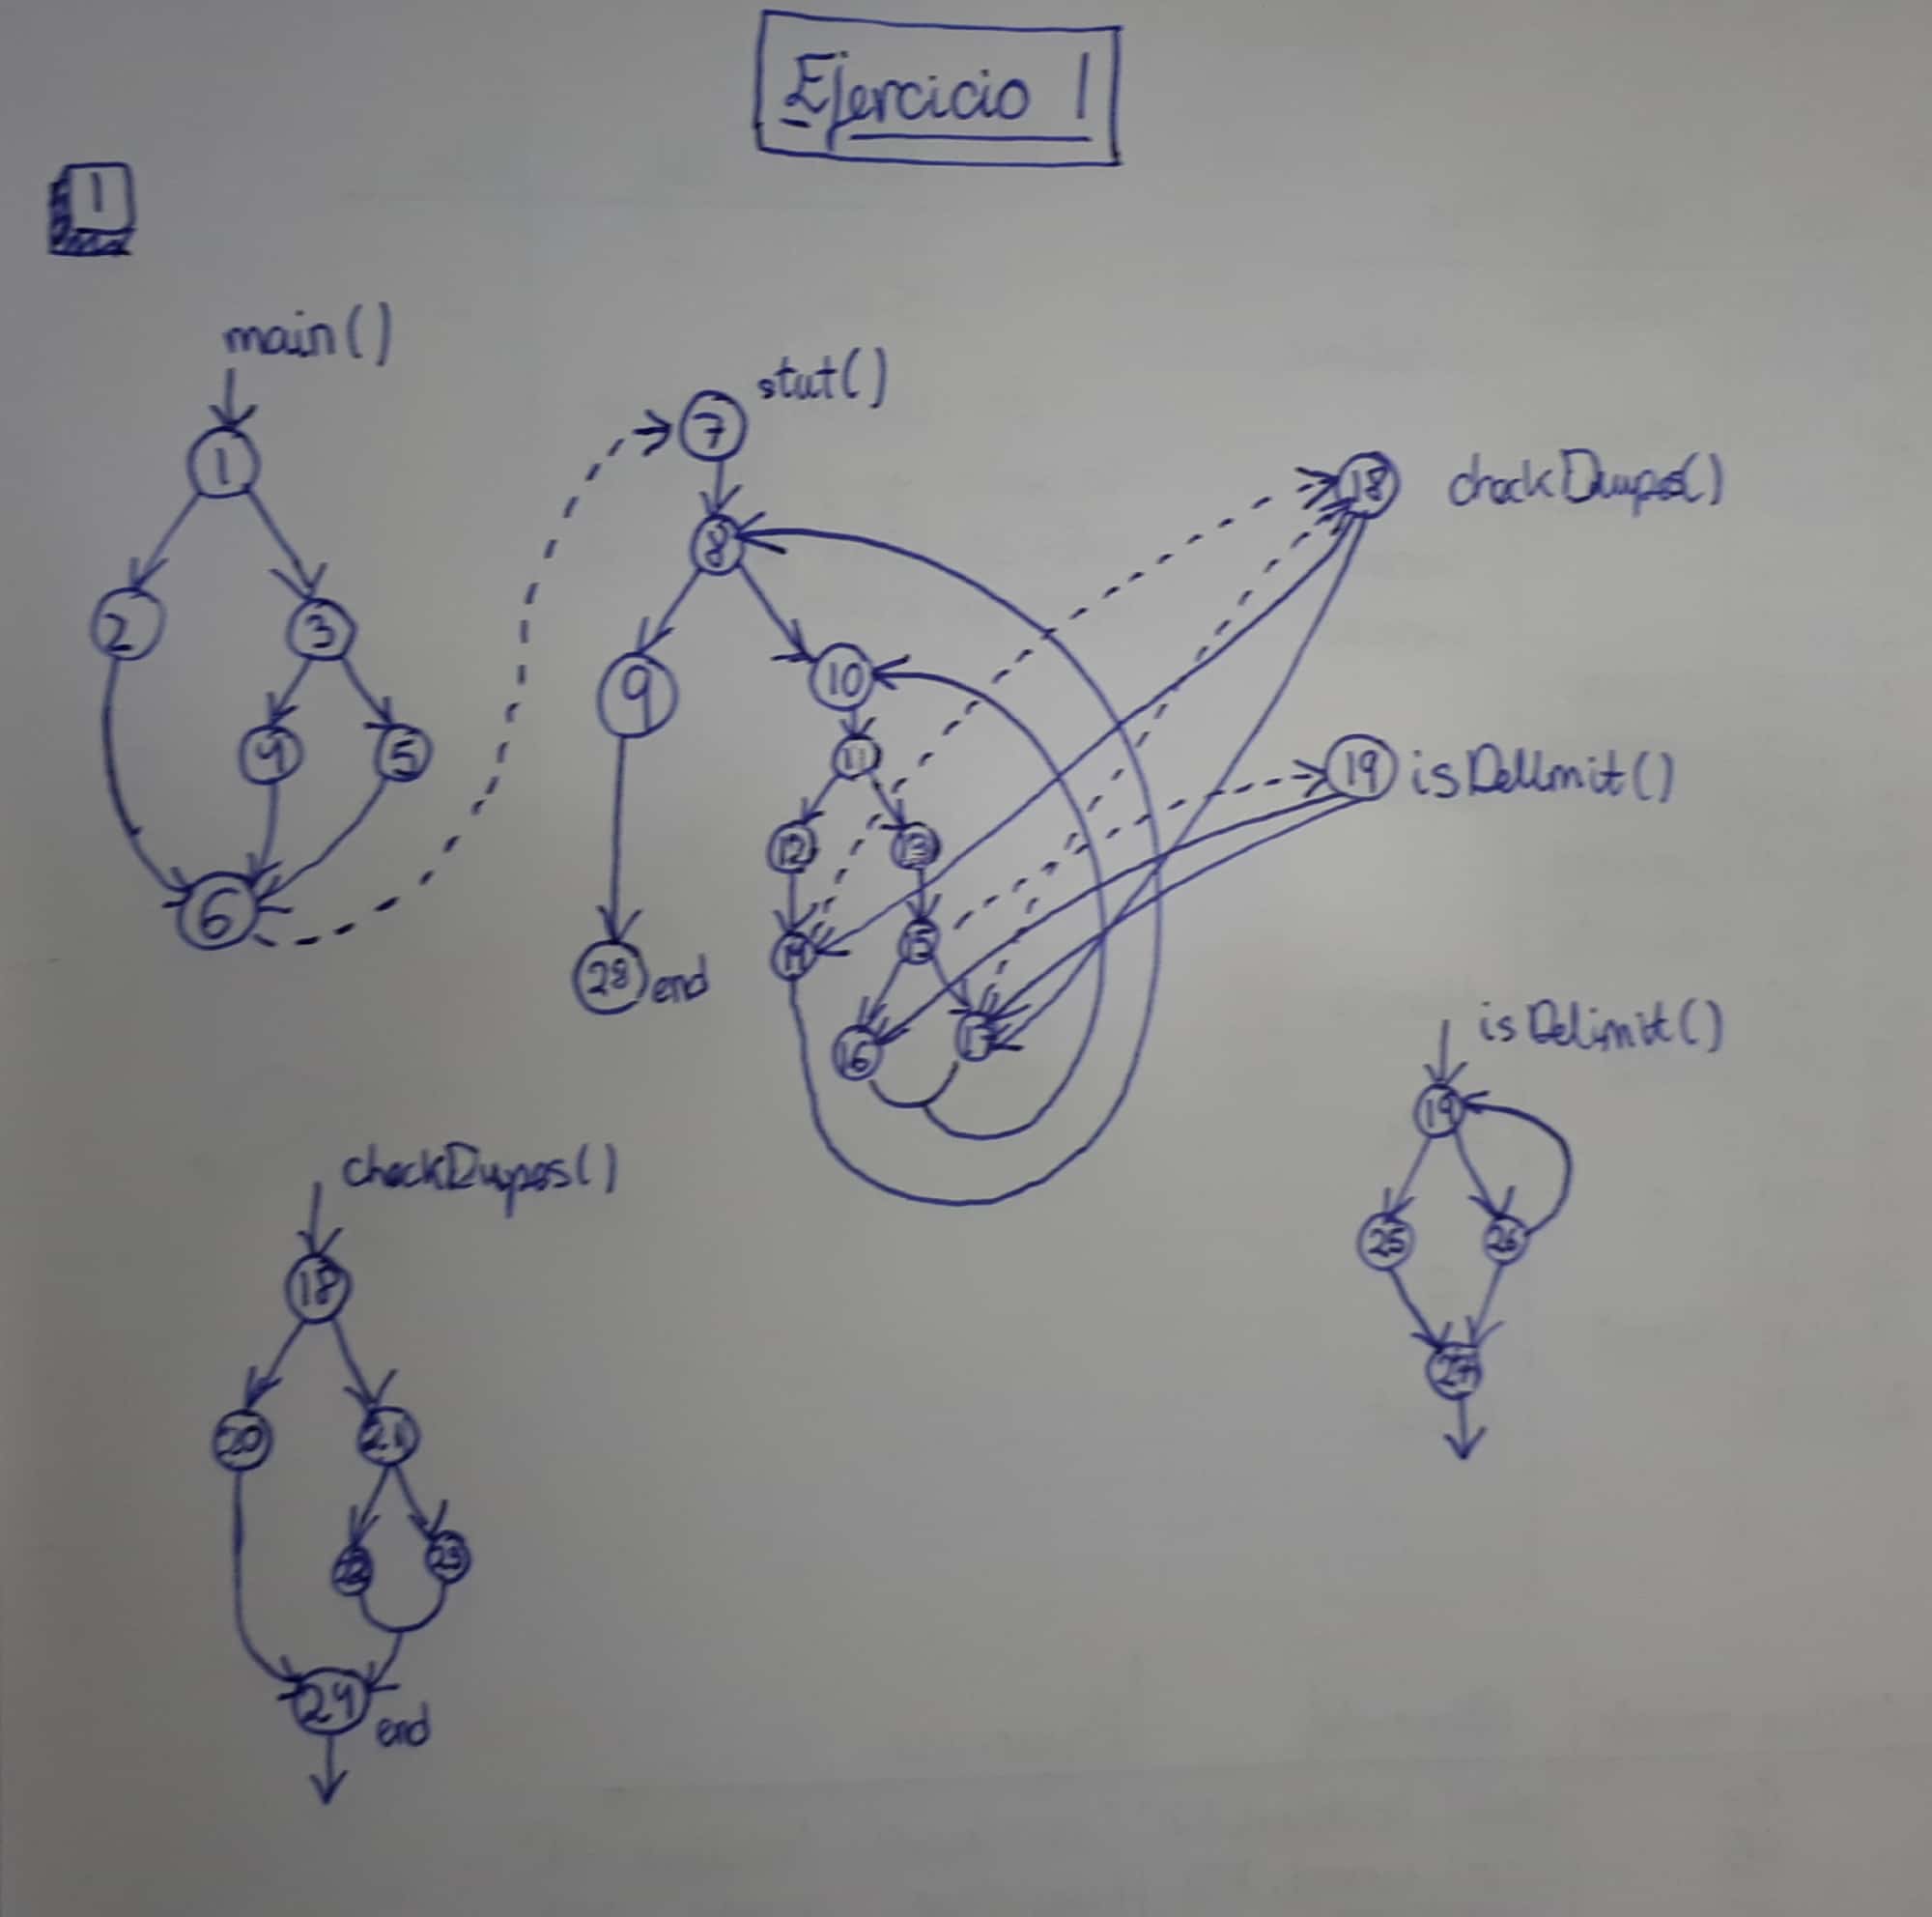 Ejercicio 1
1
main()
1
2
3
4
5
6
stut()
7
8
9
10
11
12
13
14
15
16
17
28 end
18 checkDupes()
19 isDelimit()
checkDupes()
18
20
21
22
23
24 end
isDelimit()
19
25
26
27